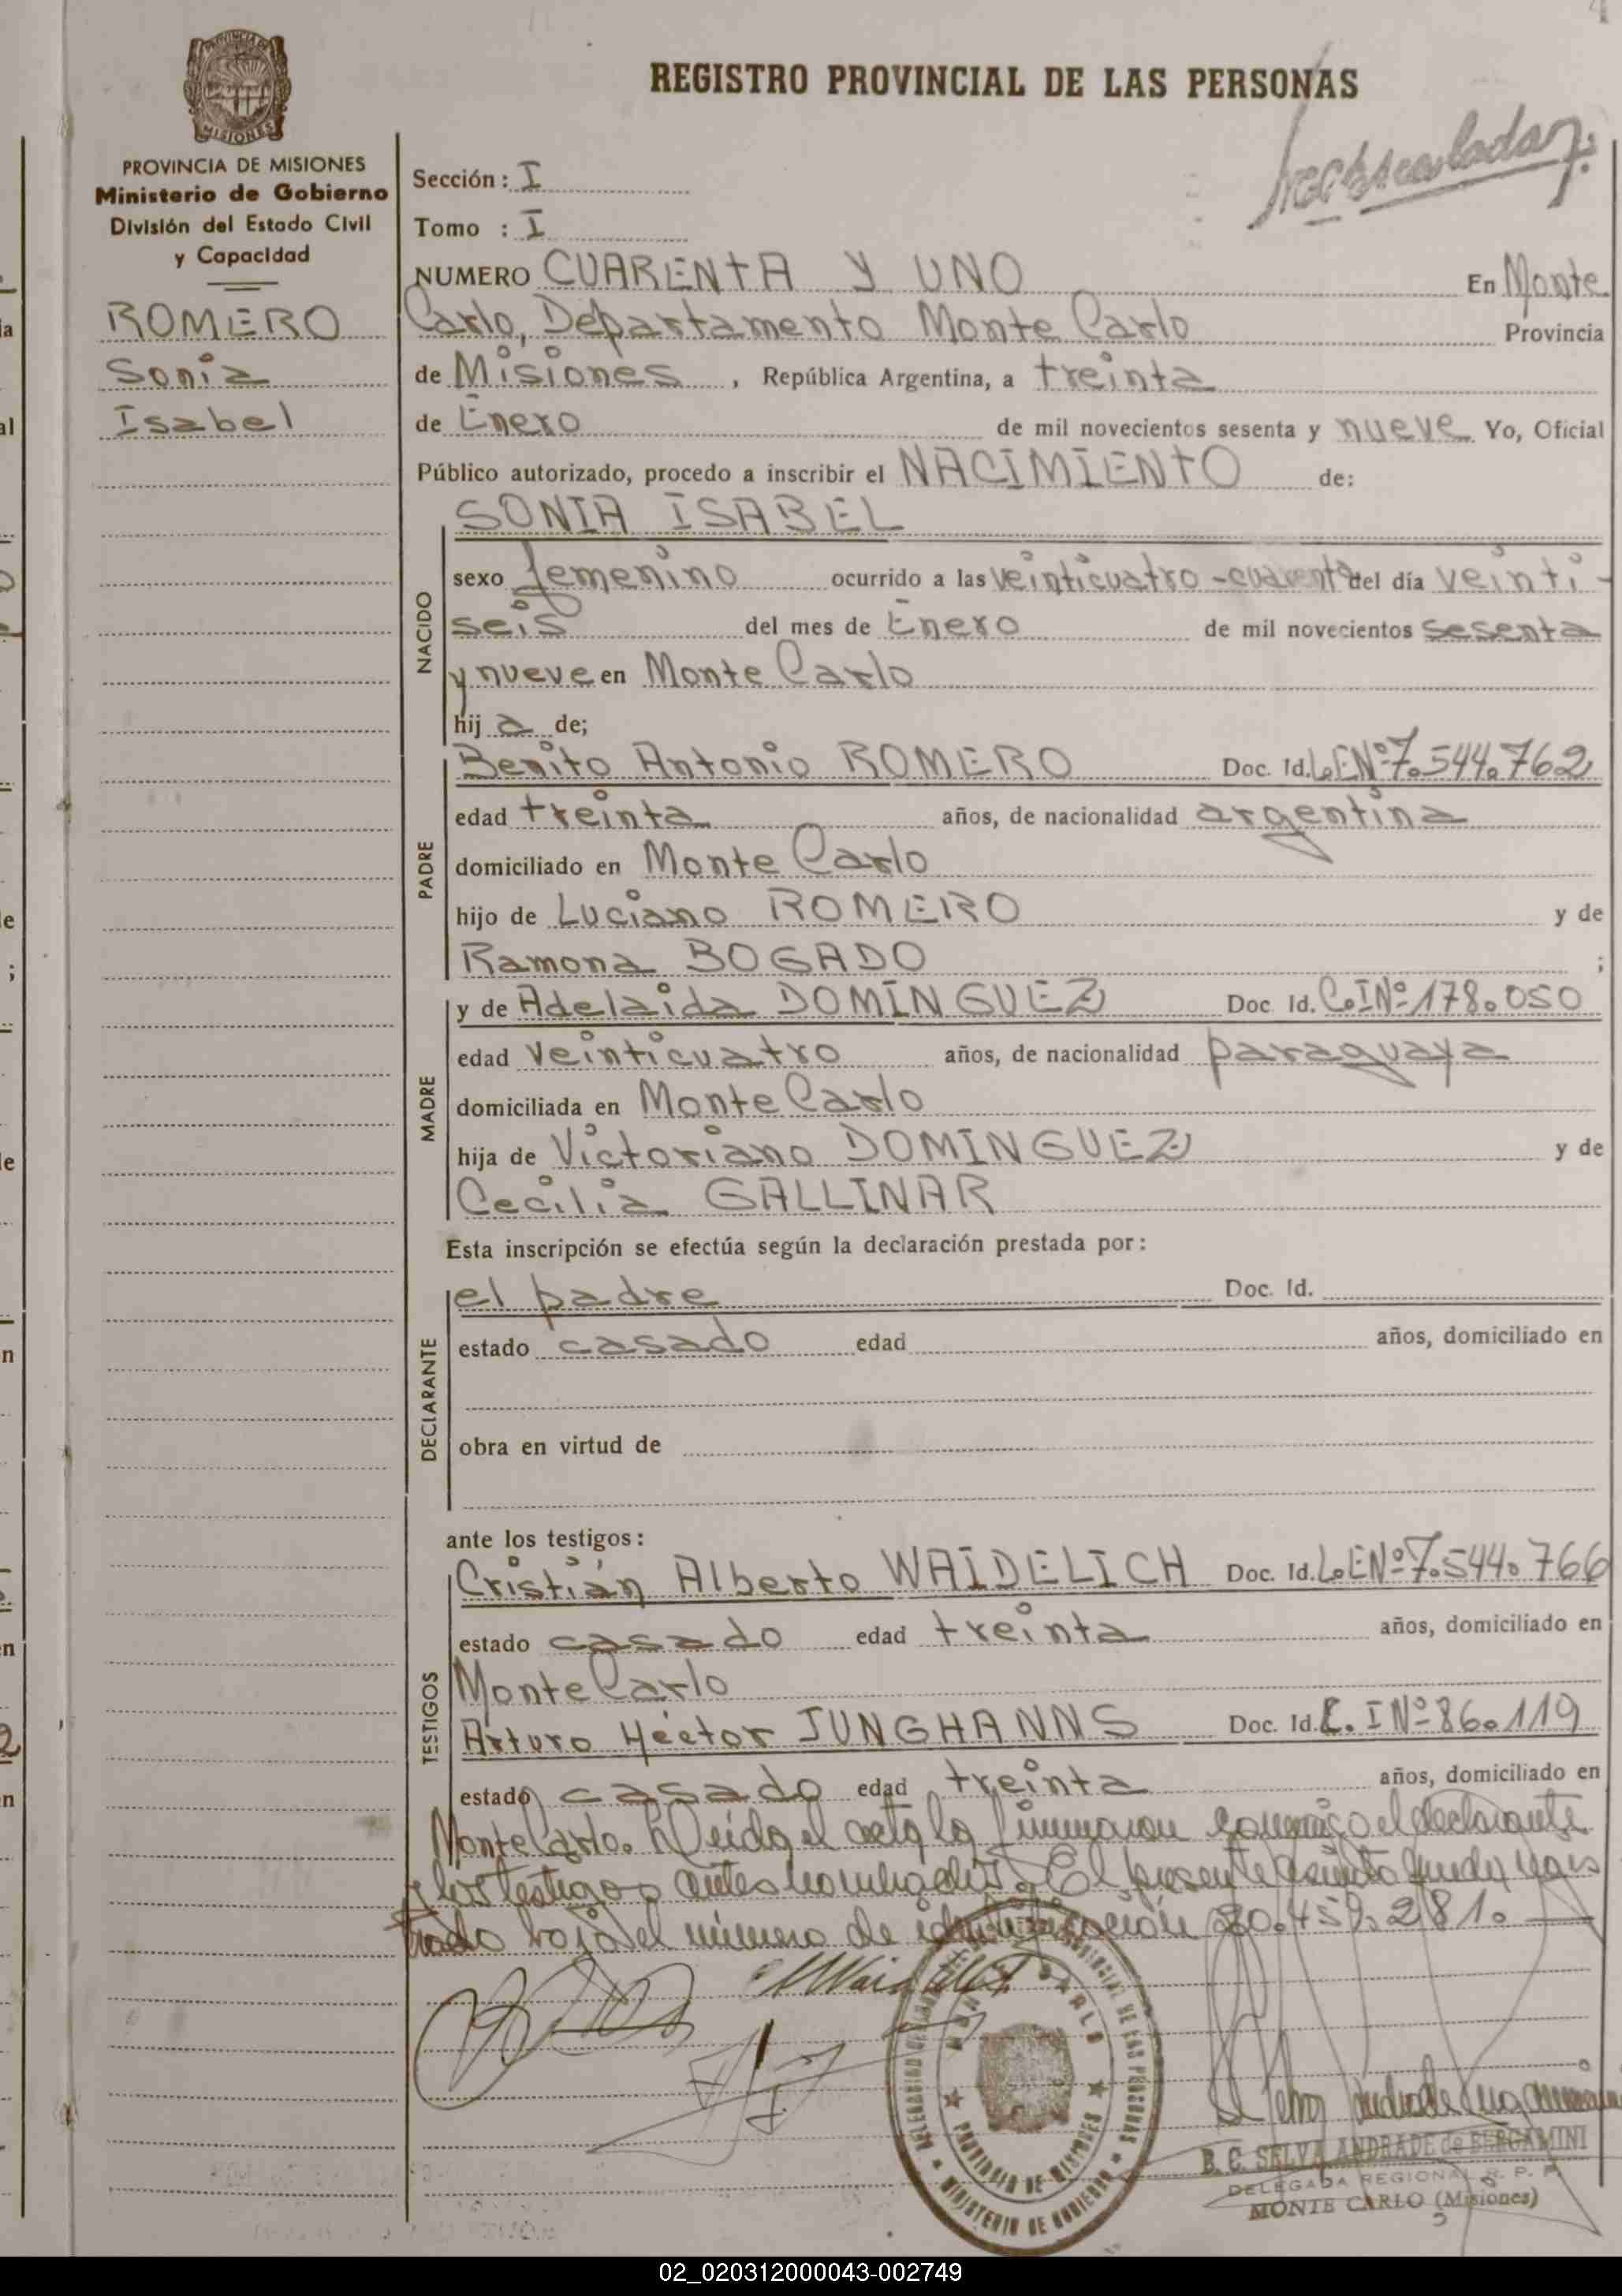 REGISTRO PROVINCIAL DE LAS PERSONAS
MISIONES
PROVINCIA DE MISIONES
Ministerio de Gobierno
División del Estado Civil
y Capacidad
ROMERO
Sonia
Isabel
Sección: I
Tomo : I
NUMERO CUARENTA Y UNO En Monte
Carlo, Departamento Monte Carlo Provincia
de Misiones, República Argentina, a treinta
de Enero de mil novecientos sesenta y nueve Yo, Oficial
Público autorizado, procedo a inscribir el NACIMIENTO de:
NACIDO
SONIA ISABEL
sexo femenino ocurrido a las veinticuatro-cuarenta del día veinti-
seis del mes de Enero de mil novecientos sesenta
y nueve en Monte Carlo
hij a de;
PADRE
Benito Antonio ROMERO Doc. Id. L.EN° 7.544.762
edad treinta años, de nacionalidad argentina
domiciliado en Monte Carlo
hijo de Luciano ROMERO y de
Ramona BOGADO ;
MADRE
y de Adelaida DOMINGUEZ Doc. Id. C.IN° 178.050
edad veinticuatro años, de nacionalidad paraguaya
domiciliada en Monte Carlo
hija de Victoriano DOMINGUEZ y de
Cecilia GALLINAR
Esta inscripción se efectúa según la declaración prestada por:
DECLARANTE
el padre Doc. Id.
estado casado edad años, domiciliado en
obra en virtud de
ante los testigos:
TESTIGOS
Cristián Alberto WAIDELICH Doc. Id. L.EN° 7.544.766
estado casado edad treinta años, domiciliado en
Monte Carlo
Arturo Héctor JUNGHANNS Doc. Id. C. I N° 86.119
estado casado edad treinta años, domiciliado en
Monte Carlo. Leída el acta la firmaron conmigo el declarante
y los testigos antes nombrados. El presente asiento queda regis
trado bajo el número de identificación 20.459.281.
PROVINCIA DE MISIONES
MINISTERIO DE GOBIERNO
B. C. SELVA ANDRADE de BERGAMINI
DELEGADA REGIONAL R. P. P.
MONTE CARLO (Misiones)
02_020312000043-002749